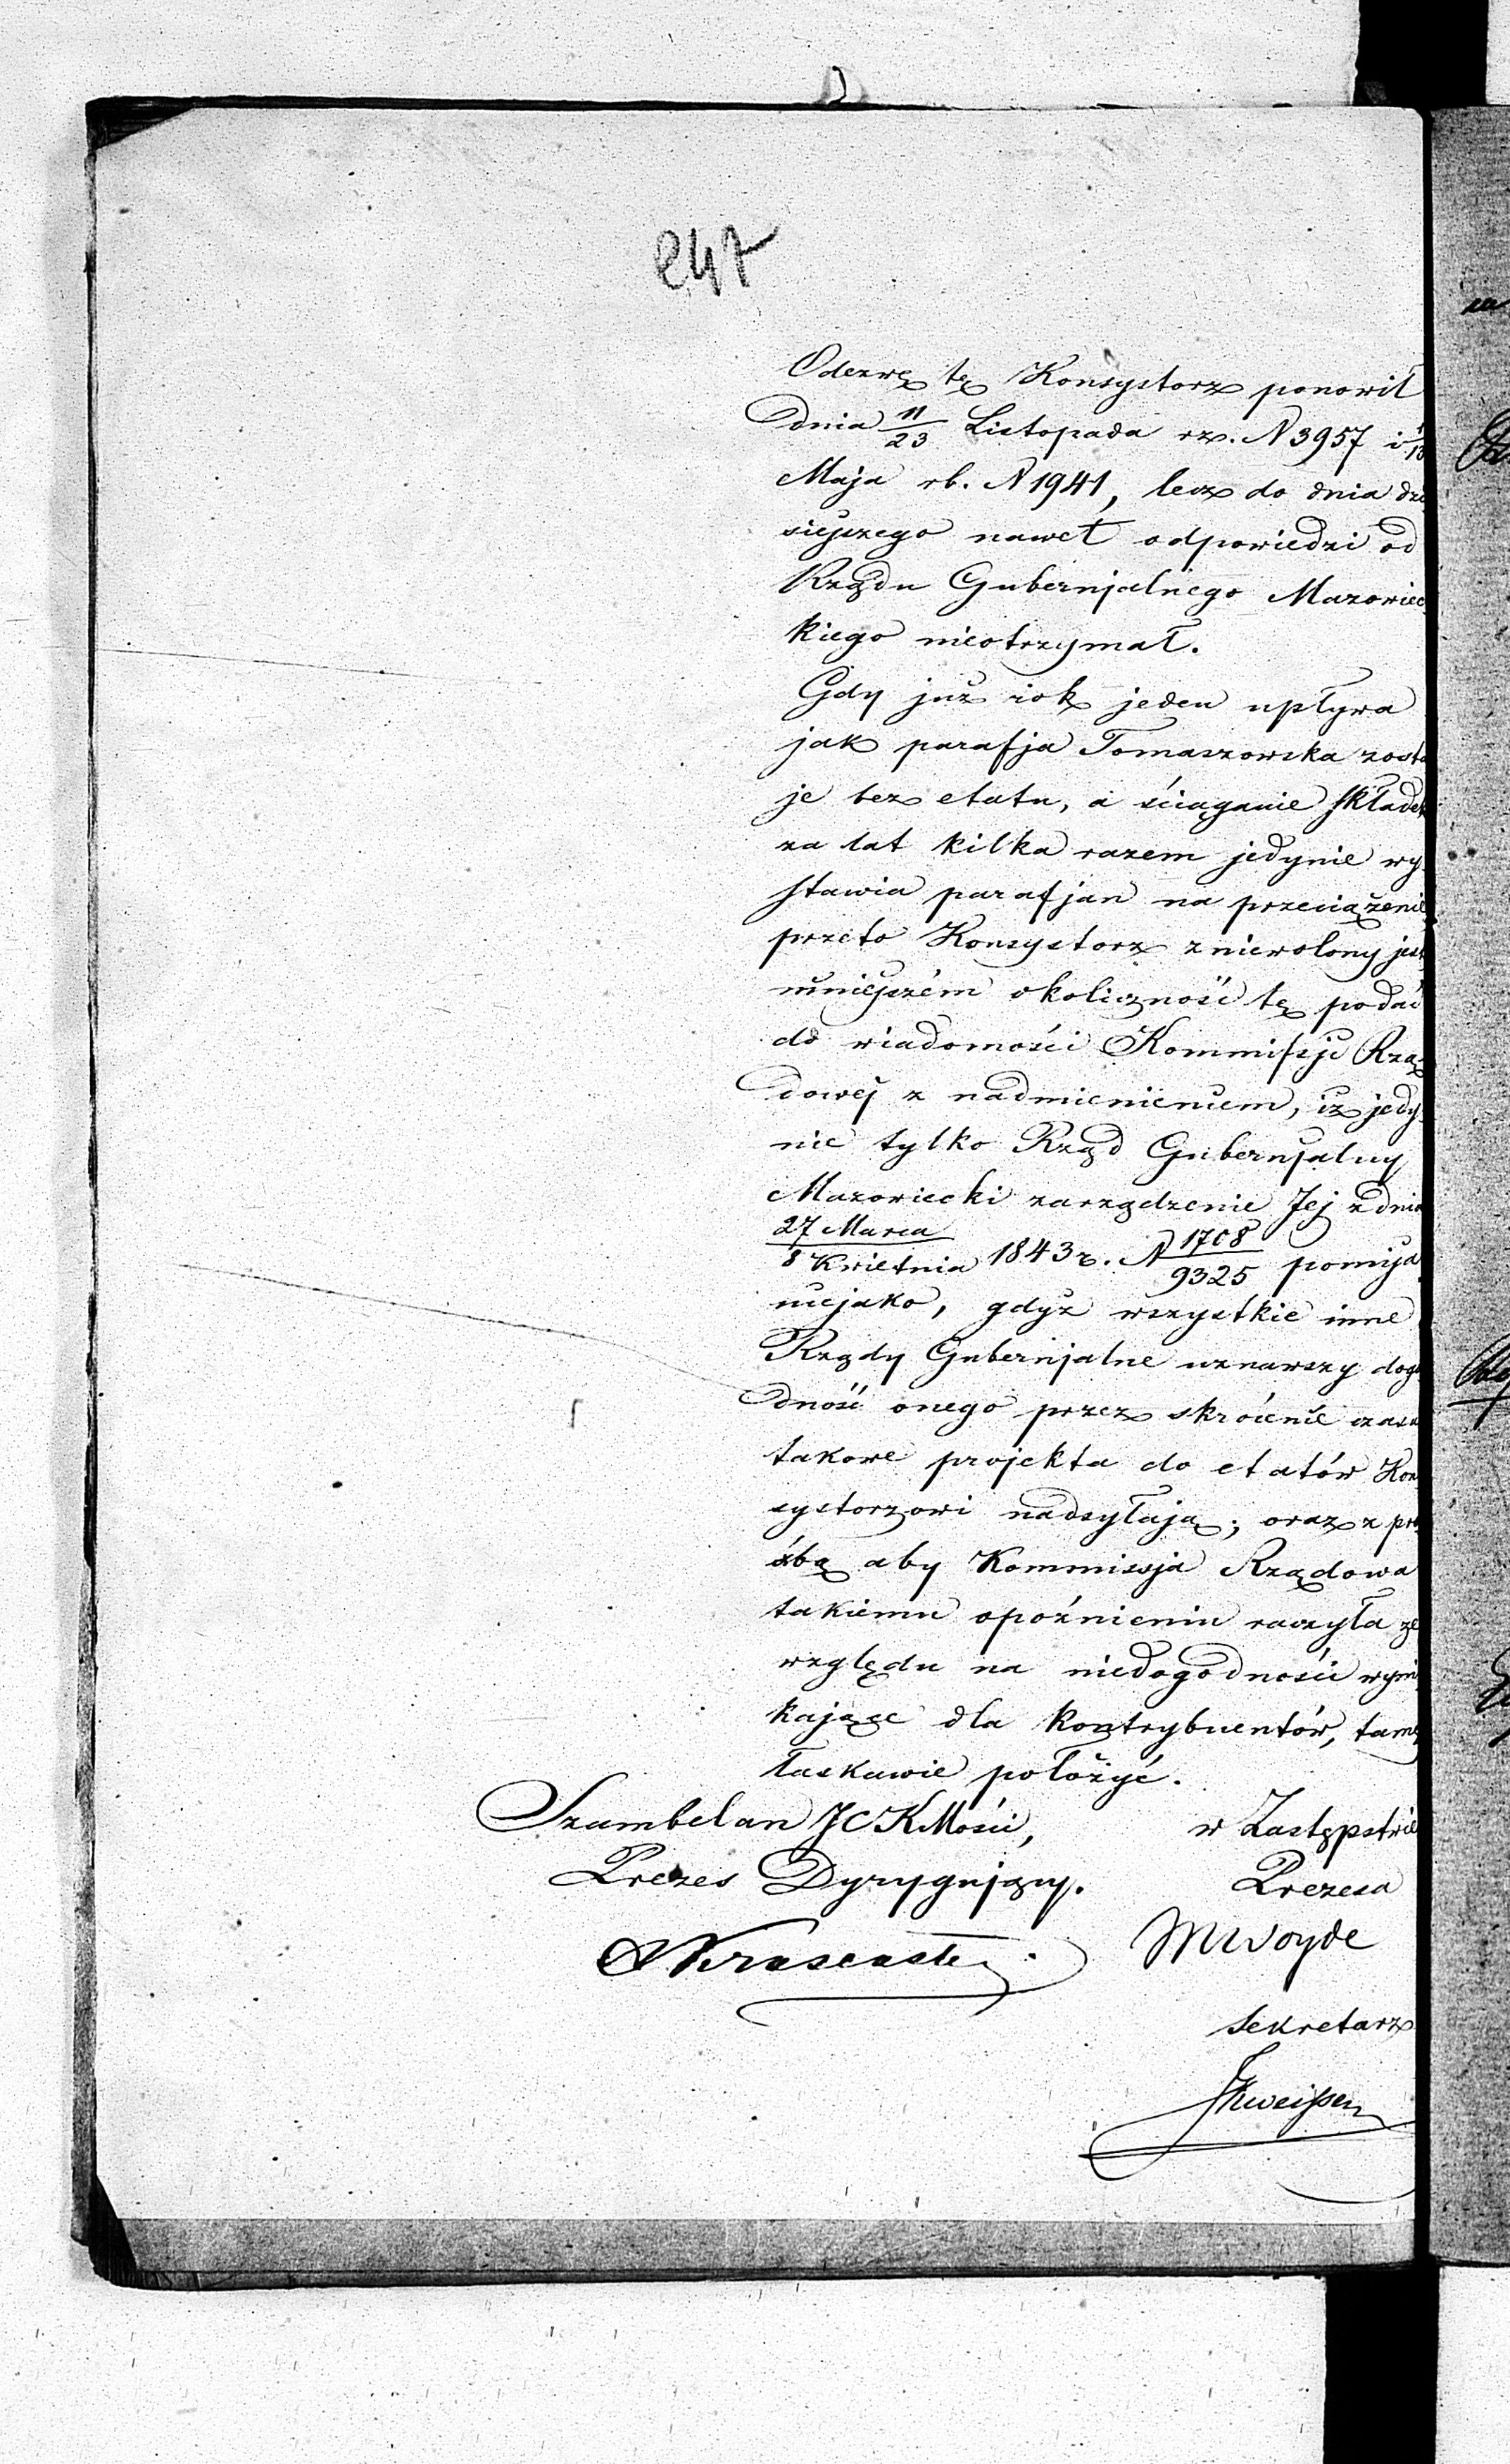 247
Odezwę tę Konsystorz ponowił
dnia 11/23 Listopada rz. N 3957 i
Maja rb. N 1941, lecz do dnia dzi
siejszego nawet odpowiedzi od
Rządu Gubernjalnego Mazowiec
kiego nieotrzymał.
Gdy już rok jeden upływa
jak parafja Tomaszowska zosta
je bez etatu, a ściąganie składek
za lat kilka razem jedynie wy
stawia parafjan na przeciążenie
przeto Konsystorz zniewolony jest
niniejszém okoliczność tę podać
do wiadomości Kommissji Rzą
dowej z nadmienieniem, iż jedy
nie tylko Rząd Gubernjalny
Mazowiecki zarządzenie Jej z dnia
27 Marca/8 Kwietnia 1843 r. N 1708/9325 pomija
niejako, gdyż wszystkie inne
Rządy Gubernjalne uznawszy dogo
dność onego przez skrócenie czasu
takowe projekta do etatów Kon
systorzowi nadsyłają; oraz z pro
źbą aby Kommissja Rządowa
takiemu opóźnieniu raczyła ze
względu na niedogodności wyni
kające dla kontrybuentów, tamę
łaskawie położyć.
Szambelan JCKMości, w Zastępstwie
Prezes Dyrygujący. Prezesa
MWoyde
Sekretarz